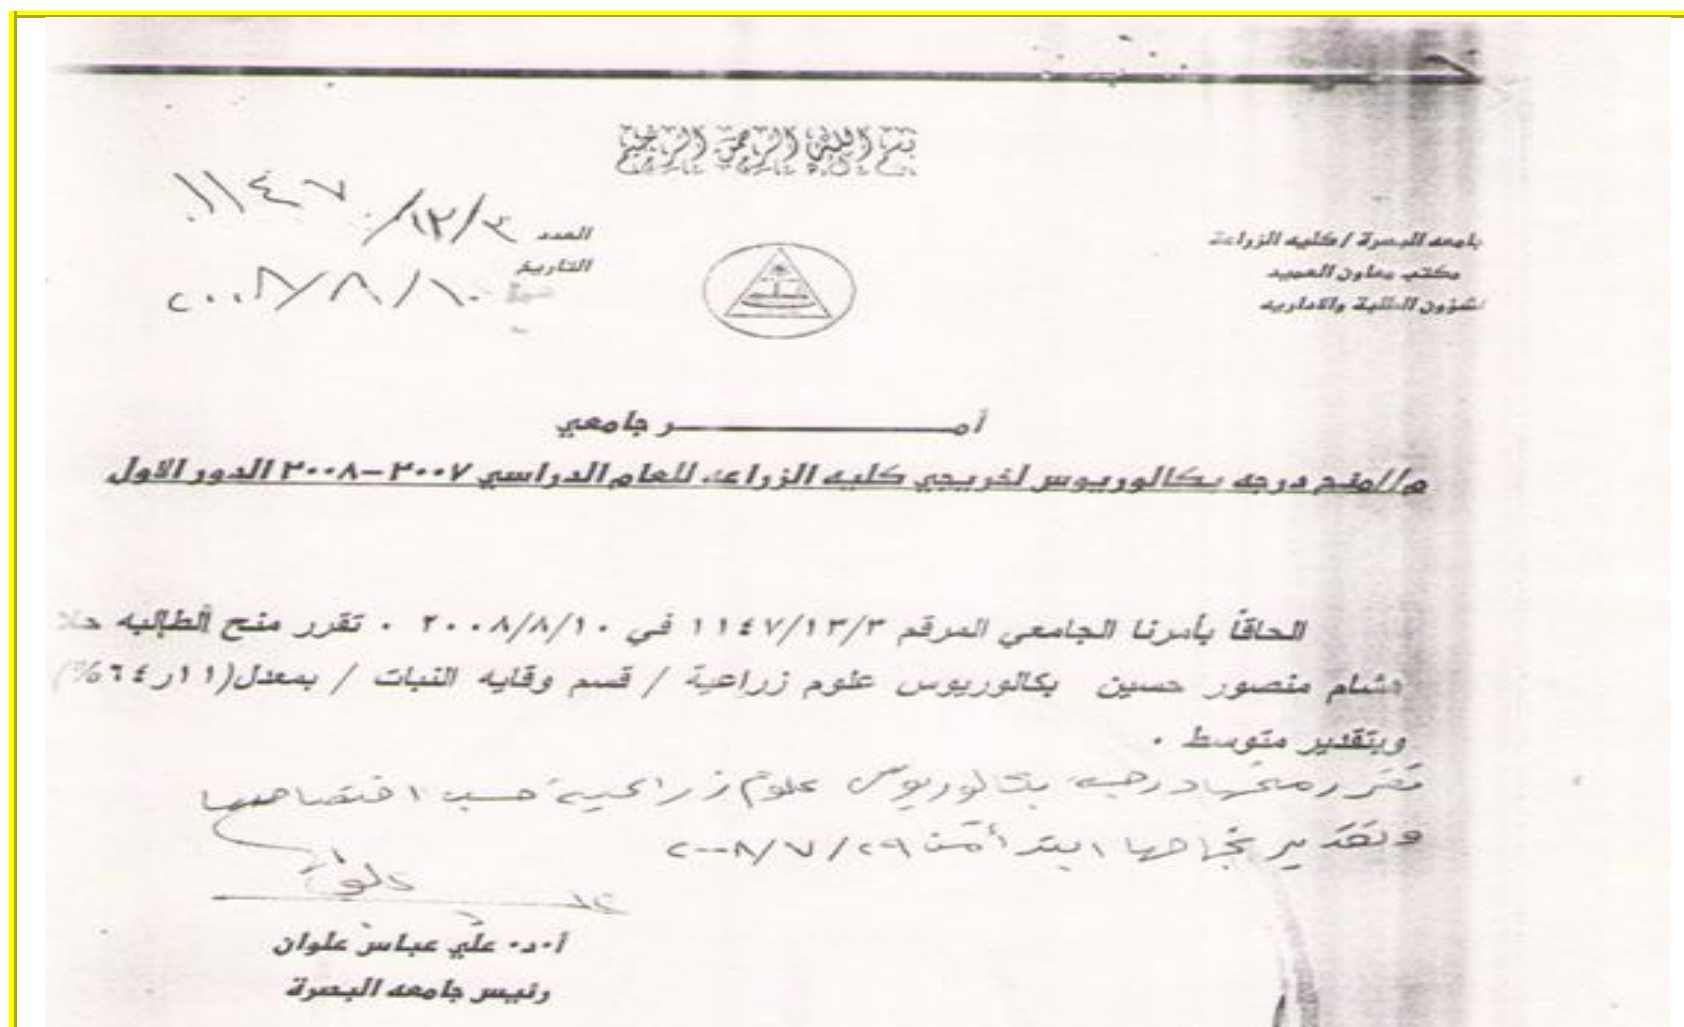 بسم الله الرحمن الرحيم
جامعه البصرة / كليه الزراعة
مكتب معاون العميد
لشؤون الطلبة والاداريه
العدد ١١٤٧/١٣/٣
التاريخ ٢٠٠٨/٨/١٠
أمـــــــــــر جامعي
م//منح درجه بكالوريوس لخريجي كليه الزراعه للعام الدراسي ٢٠٠٧–٢٠٠٨ الدور الاول
الحاقاً بأمرنا الجامعي المرقم ١١٤٧/١٣/٣ في ٢٠٠٨/٨/١٠ . تقرر منح الطالبه
هشام منصور حسين بكالوريوس علوم زراعية / قسم وقايه النبات / بمعدل(١١ر٦٤%)
وبتقدير متوسط .
تقرر منحها درجه بكالوريوس علوم زراعية حسب اختصاصها
وتقدير نجاحها ابتدأ من ٢٠٠٨/٧/٢٩
أ.د. علي عباس علوان
رئيس جامعه البصرة